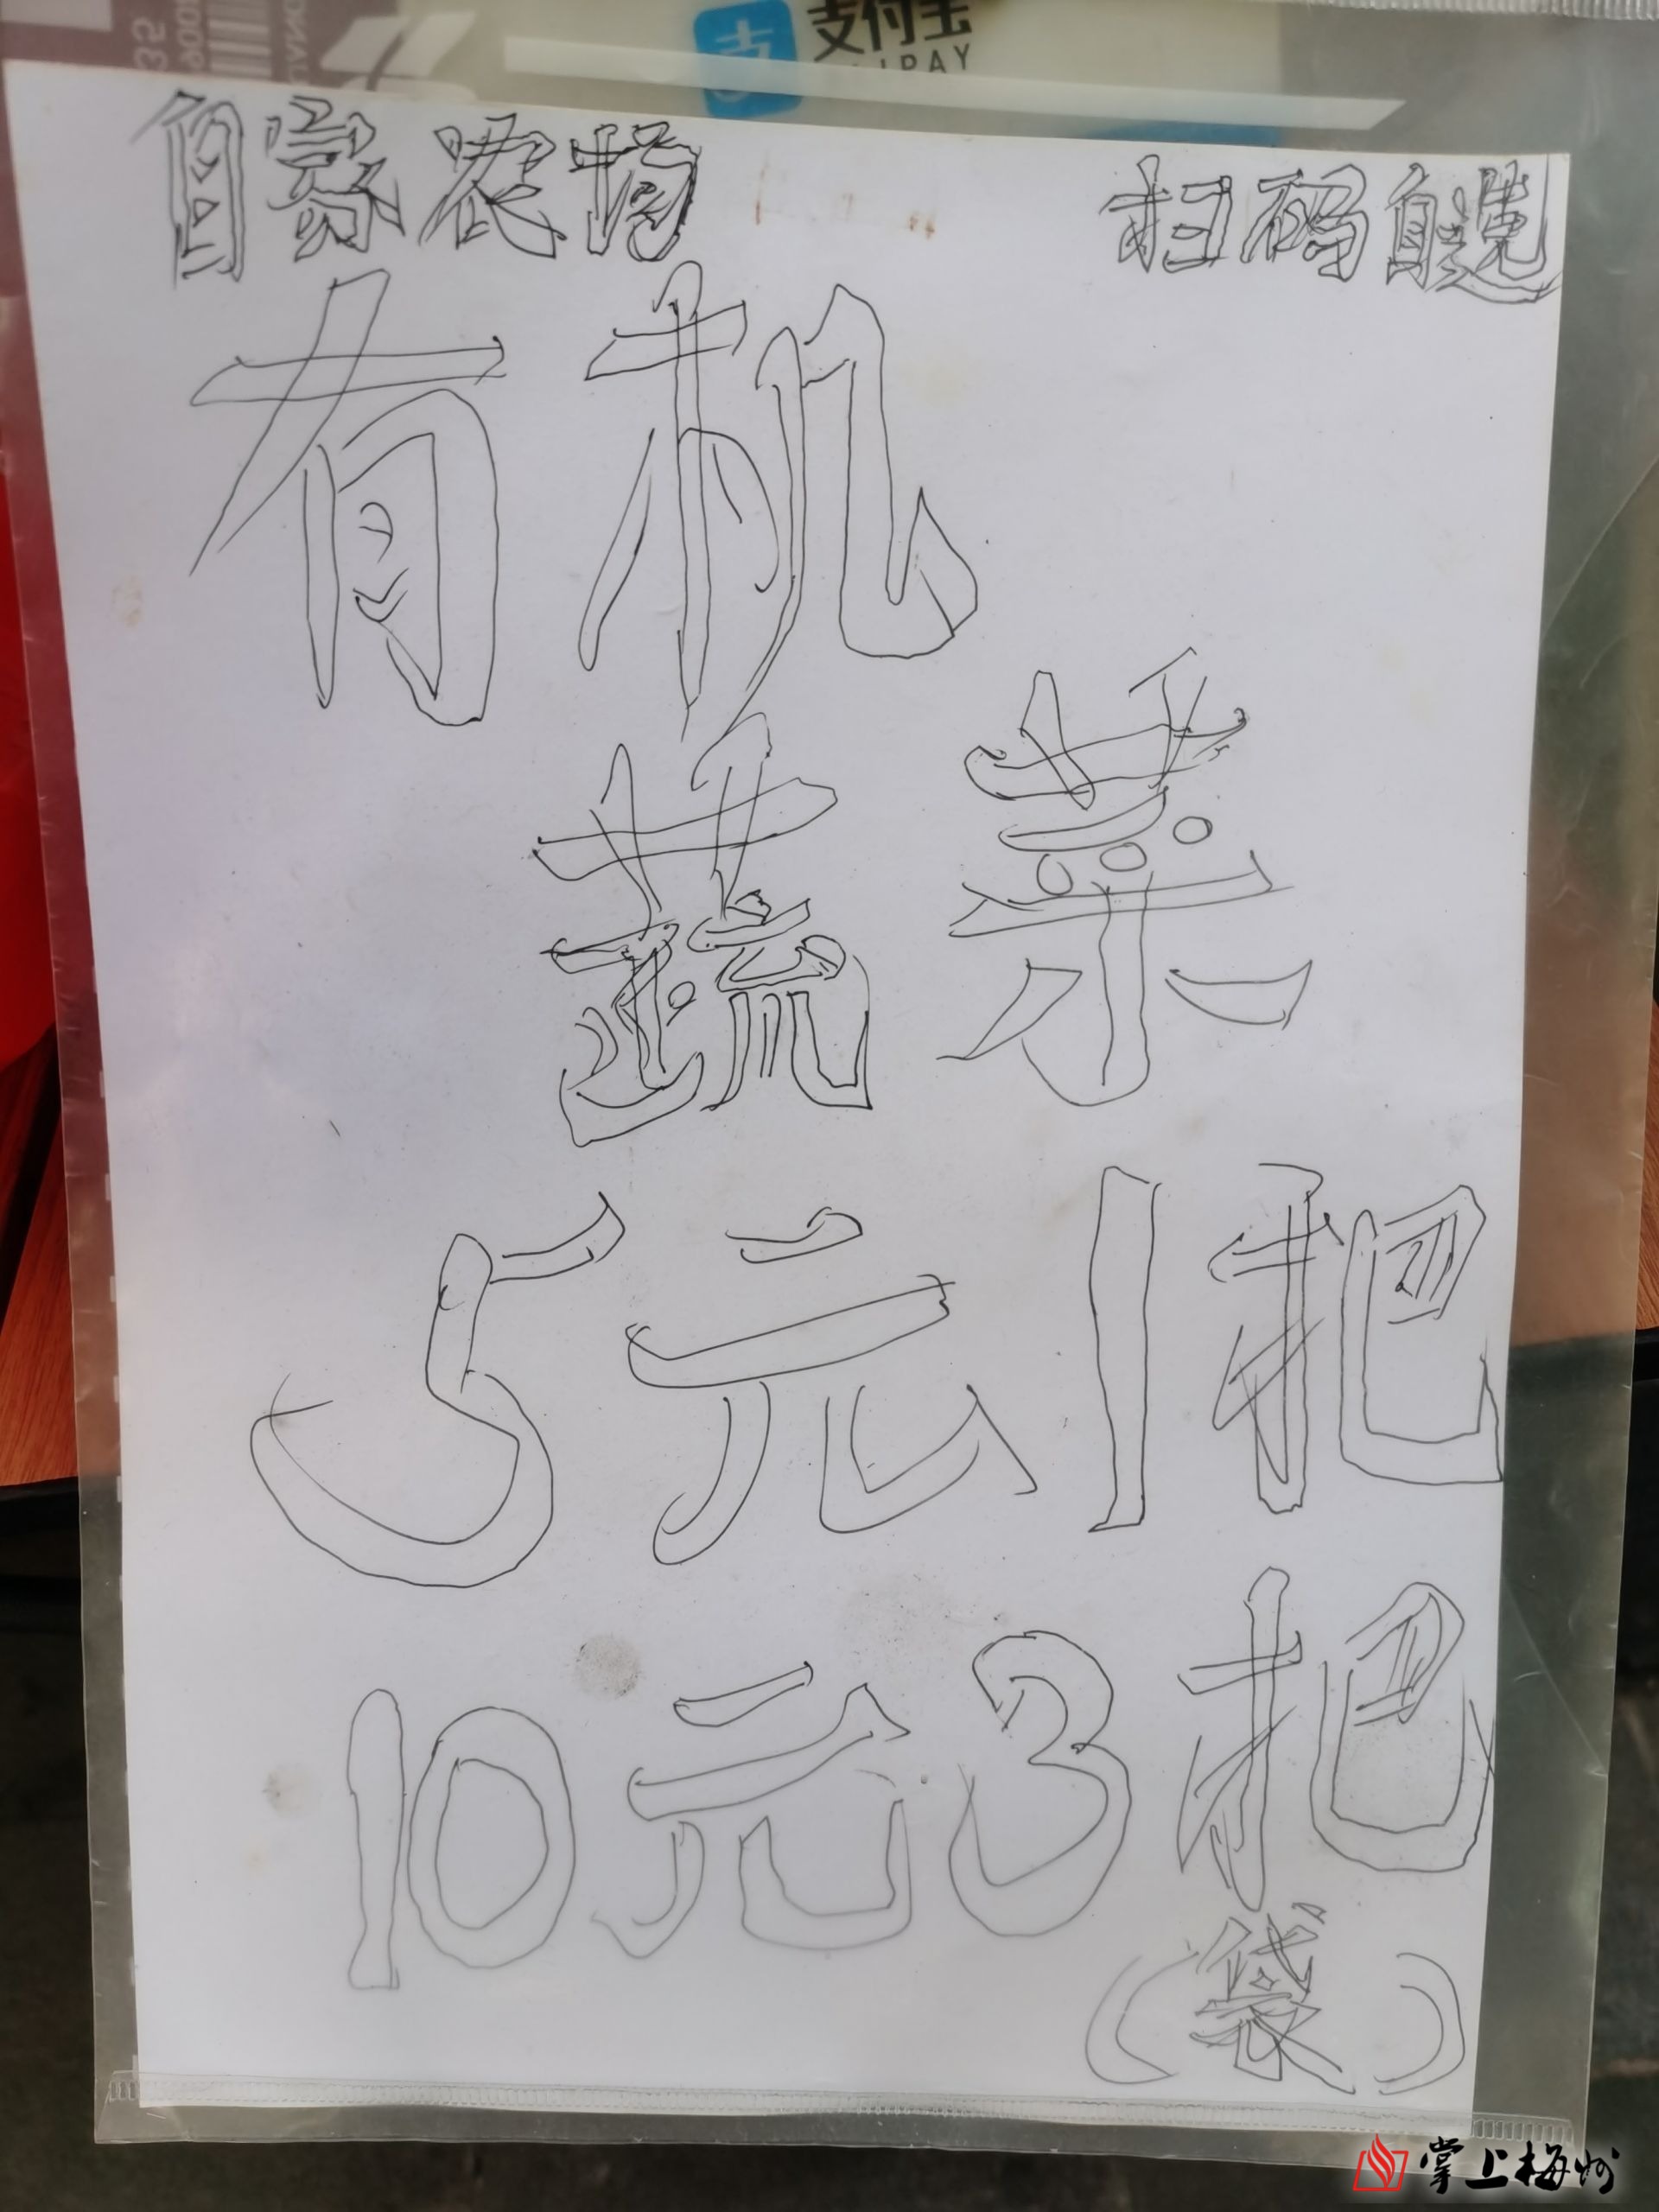 支付宝
ALIPAY
自家农场 扫码自览
有机
蔬菜
5元1把
10元3把
(袋)
掌上梅州